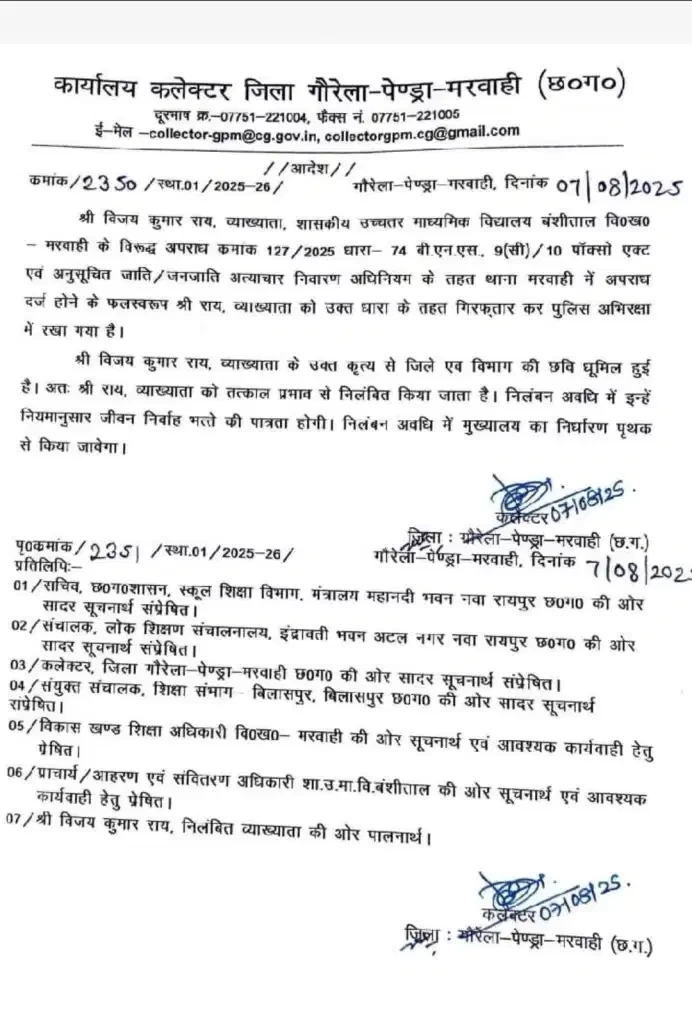 कार्यालय कलेक्टर जिला गौरेला-पेण्ड्रा-मरवाही (छ०ग०)
दूरभाष क्र.-07751-221004, फैक्स नं. 07751-221005
ई-मेल -collector-gpm@cg.gov.in, collectorgpm.cg@gmail.com
//आदेश//
कमांक/2350/स्था.01/2025-26/ गौरेला-पेण्ड्रा-गरवाही, दिनांक 07/08/2025
श्री विजय कुमार राय, व्याख्याता, शासकीय उच्चतर माध्यमिक विद्यालय बंशीताल वि०ख०
- मरवाही के विरूद्ध अपराध कमांक 127/2025 धारा- 74 बी.एन.एस., 9(सी)/10 पॉक्सो एक्ट
एवं अनुसूचित जाति/जनजाति अत्याचार निवारण अधिनियम के तहत थाना मरवाही में अपराध
दर्ज होने के फलस्वरूप श्री राय, व्याख्याता को उक्त धारा के तहत गिरफ्तार कर पुलिस अभिरक्षा
में रखा गया है।
श्री विजय कुमार राय, व्याख्याता के उक्त कृत्य से जिले एव विभाग की छवि धूमिल हुई
है। अतः श्री राय, व्याख्याता को तत्काल प्रभाव से निलंबित किया जाता है। निलंबन अवधि में इन्हें
नियमानुसार जीवन निर्वाह भत्ते की पात्रता होगी। निलंबन अवधि में मुख्यालय का निर्धारण पृथक
से किया जावेगा।
कलेक्टर 07/08/25.
जिला : गौरेला-पेण्ड्रा-मरवाही (छ.ग.)
पृ०कमांक/2351/स्था.01/2025-26/ गौरेला-पेण्ड्रा-मरवाही, दिनांक 7/08/202
प्रतिलिपिः-
01/सचिव, छ०ग०शासन, स्कूल शिक्षा विभाग, मंत्रालय महानदी भवन नवा रायपुर छ०ग० की ओर
सादर सूचनार्थ संप्रेषित।
02/संचालक, लोक शिक्षण संचालनालय, इंद्रावती भवन अटल नगर नवा रायपुर छ०ग० की ओर
सादर सूचनार्थ संप्रेषित।
03/कलेक्टर, जिला गौरेला-पेण्ड्रा-मरवाही छ०ग० की ओर सादर सूचनार्थ संप्रेषित।
04/संयुक्त संचालक, शिक्षा संभाग - बिलासपुर, बिलासपुर छ०ग० की ओर सादर सूचनार्थ
संप्रेषित।
05/विकास खण्ड शिक्षा अधिकारी वि०ख०- मरवाही की ओर सूचनार्थ एवं आवश्यक कार्यवाही हेतु
प्रेषित।
06/प्राचार्य/आहरण एवं संवितरण अधिकारी शा.उ.मा.वि.बंशीताल की ओर सूचनार्थ एवं आवश्यक
कार्यवाही हेतु प्रेषित।
07/श्री विजय कुमार राय, निलंबित व्याख्याता की ओर पालनार्थ।
कलेक्टर 07/08/25.
जिला : गौरेला-पेण्ड्रा-मरवाही (छ.ग.)